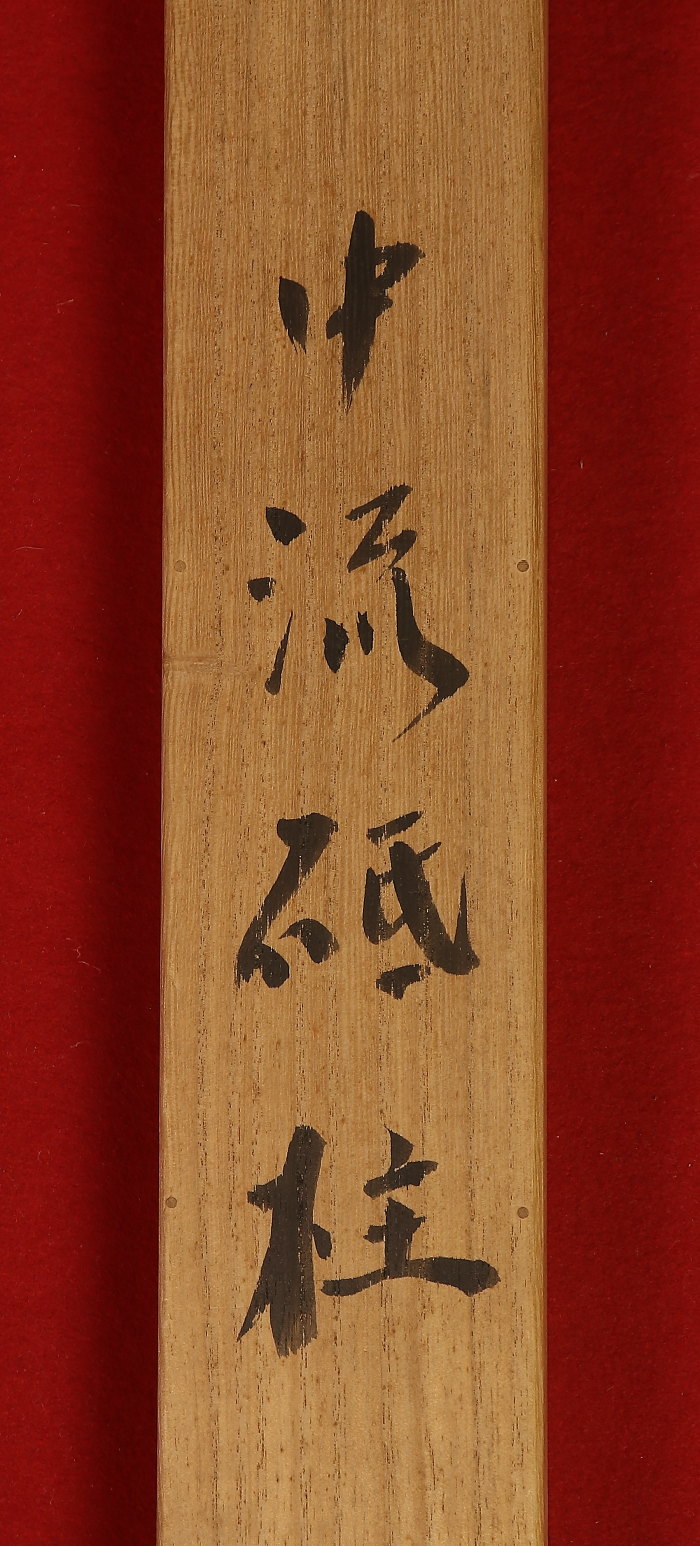 中流砥柱